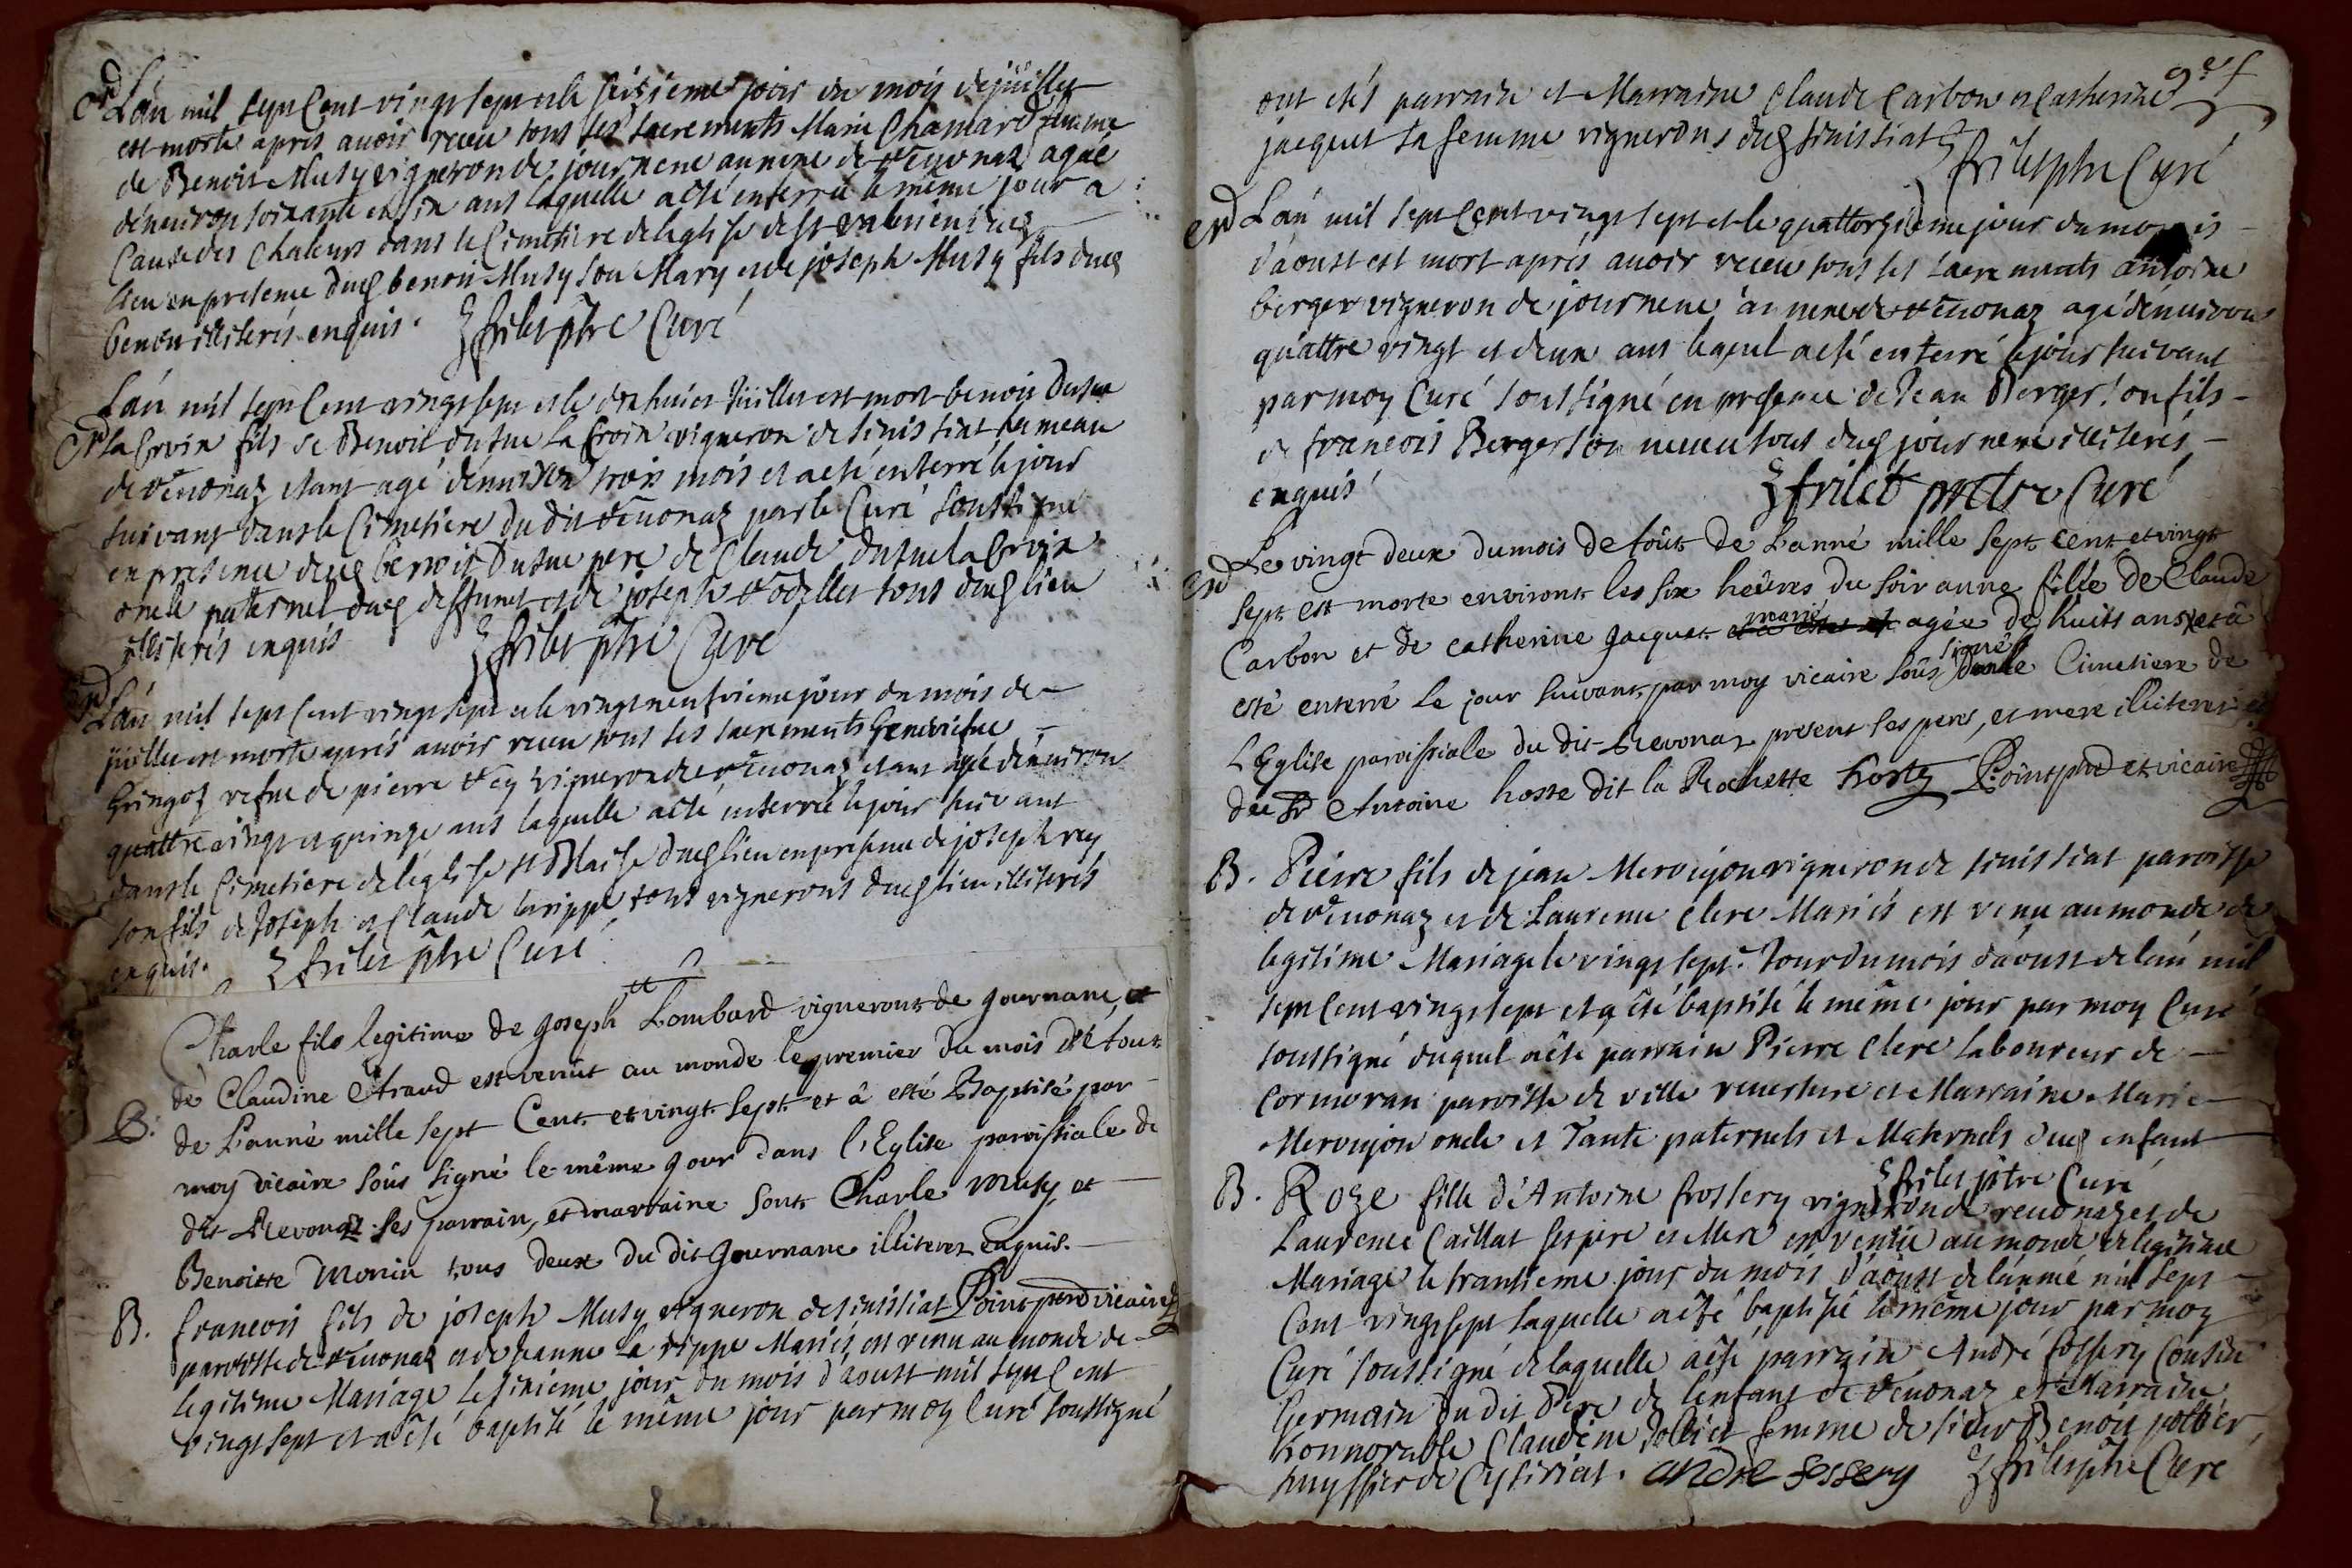 Lán mil sept Cent vingt sept et le seizieme jour du mois de juillet
est morte apres avoir receu tous ses sacrements Marie Chamard femme
de Benoit Musy vigneron de journene annexe de Reuonaz agée
dénuiron soixante et six ans laquelle a esté enterrée le même jour a
Cause des Chaleurs dans le Cimetiere de leglise de st
lieu en presence dud benoit Musy son Mary et de joseph Musy fils dud
benoit illiterés enquis. frilet ptre Curé
Lán mil sept Cent vingt sept et le dix huict Juillet est mort benoit Dutue
la Croix fils de Benoit dutue La Croix vigneron de sinissiat hameau
de Reuonaz etant agé dénuiron trois mois et a esté enterré le jour
suivant dans le Cimetiere du dit Reuonaz par le Curé soussigné
en presence dud benoit Dutue pere de Claude Dutue la Croix
oncle paternel dud deffunct et de joseph tous dud lieu
illiterés enquis frilet ptre Curé
Lán mil sept Cent vingt sept et le vingt neufvieme jour du mois de
juillet est morte aprés avoir receu tous ses sacrements Geneviefue
Gringoz vefue de pierre Rey vigneron de Reuonaz etant agée dénuiron
quattre vingt et quinze ans laquelle a esté enterrée le jour suivant
dans le Cimetiere de léglise st Blaise dud lieu en presence de joseph rey
son fils de Joseph et Claude larippe tous vignerons dud lieu illiterés
enquis. frilet ptre Curé
Charle fils legitime de Joseph Lombard vigneront de Journane, et
de Claudine Araud est venüt au monde le premier du mois d'étout
B. de L'anné mille sept Cent et vingt sept et â esté Baptisé par
moy vicaire soûs signé le même jour dans l'Eglise paroissiale de
dit Revonaz ses parrain, et marraine sont Charle Musy, et
Benoitte Monin tous deux du dit Journane illiterez enquis.
Point pbrd vicaire
B. francois fils de joseph Musy vigneron de sinissiat
paroisse de Reuonaz et de Jeanne La rippe Mariés est venu au monde de
legitime Mariage le sixieme jour du mois d'aoust mil sept Cent
vingt sept et a esté baptisé le même jour par moy Curé soussigné
ont etés parrain et Marraine Claude Carbon et Catherine
jacquet sa femme vignerons dud sinissiat
frilet ptre Curé
Lán mil sept Cent vingt sept et le quattorzieme jour du mois
d'aoust est mort aprés avoir receu tous ses sacrements antoine
berger vigneron de journene annexe de Reuonaz agé dénuiron
quattre vingt et deux ans lequel a esté enterré le jour suivant
par moy Curé soussigné en presence de Jean Berger son fils
de francois Berger son neueu tous dud journene illiterés
enquis frilet pretre Curé
Le vingt deux du mois de toût de L'anné mille sept cent et vingt
sept est morte environt les six heûres du soir anne fille de Claude
Carbon et de catherine Jacquet marié agée de huits ans et â
esté enterré le jour suivant par moy vicaire soûs signé dans le Cimetiere de
L'Eglise paroissiale du dit Revonaz present ses peres, et mere illiterez et
du Sr Antoine hoste dit la Rochette hoste Point pbrd et vicaire
B. Pierre fils de jean Meroujon vigneron de sinissiat paroisse
de Reuonaz et de Laurence Clerc Mariés est venu au monde de
legitime Mariage le vingt sept. Jour du mois d'aoust de lán mil
sept Cent vingt sept et a esté baptisé le même jour par moy Curé
soussigné duquel a esté parrain Pierre Clerc laboureur de
Cormoran paroisse de ville reuersure et Marraine Marie
Meroujon oncle et Tante paternels et Maternels dud enfant
frilet ptre Curé
B. Roze fille d'Antoine frossery vigneron de reuonaz et de
Laurence Caillat ses pere et Mere est venüe au monde de legitime
Mariage le trantieme jour du mois d'aoust de lánnée mil sept
Cent vingt sept laquelle a esté baptisée le même jour par moy
Curé soussigné de laquelle a esté parrain André fossery Cousin
Germain du dit Pere de l'enfant de Reuonaz et Marraine
honnorable Claudine femme de sieur Benoit pothier
huyssier de Ceysiriat. andre fossery frilet ptre Cure